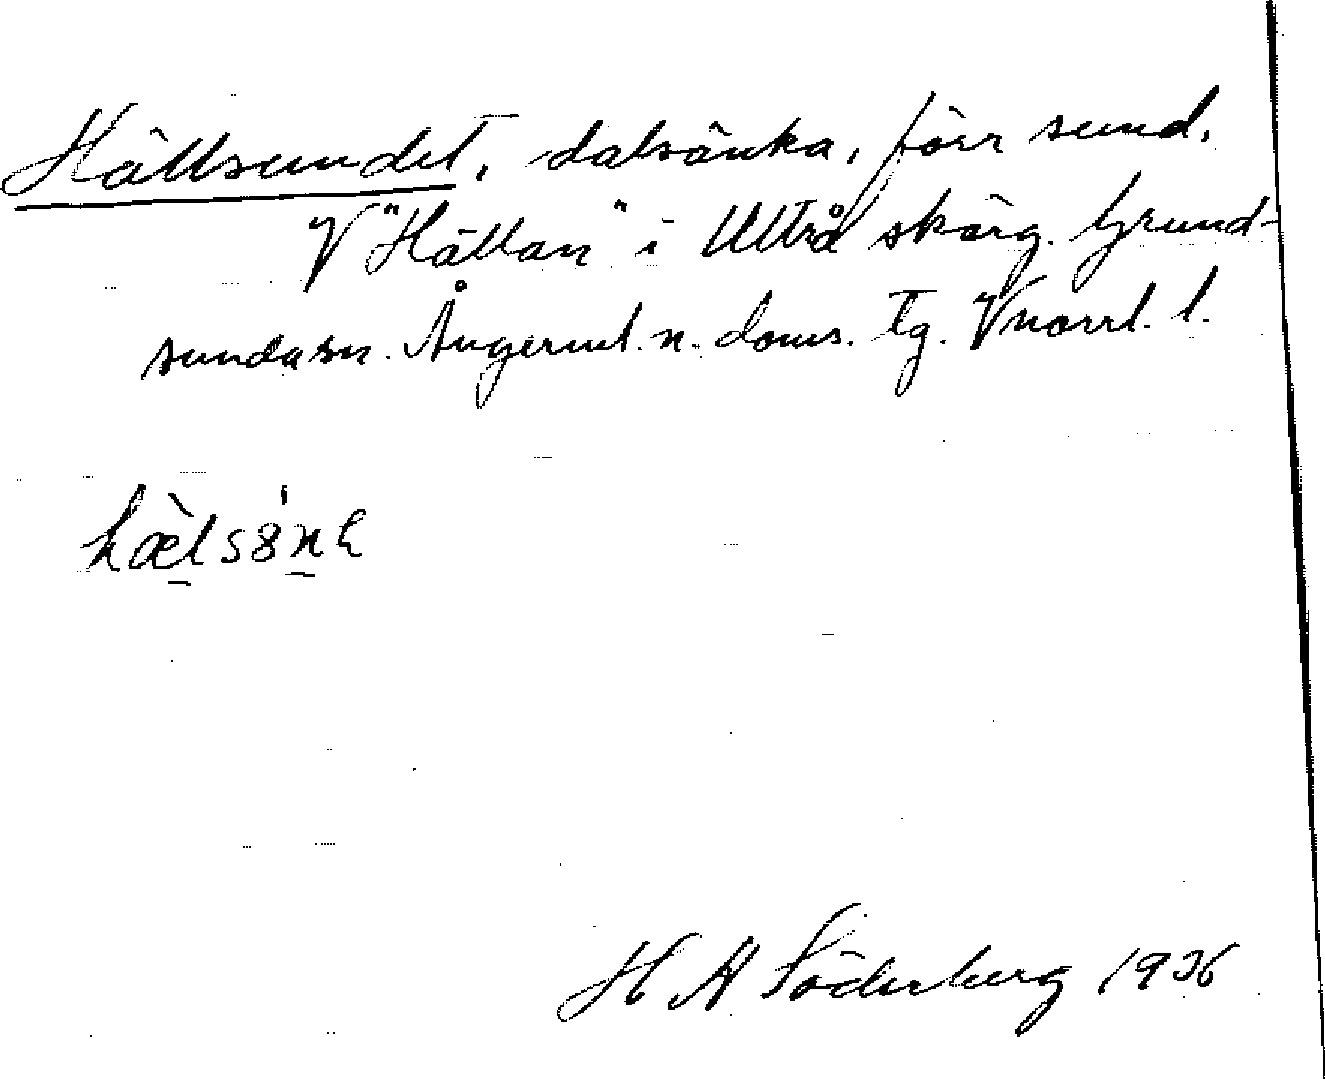 Hällsundet, dalsänka, förr sund.
V "Hällan" i Ultrå skärg. Grund-
sunda sn. Ångerml. n. doms. tg. Vnorrl. l.
hæ̀lsȣ́nɛ
H A Söderberg 1936